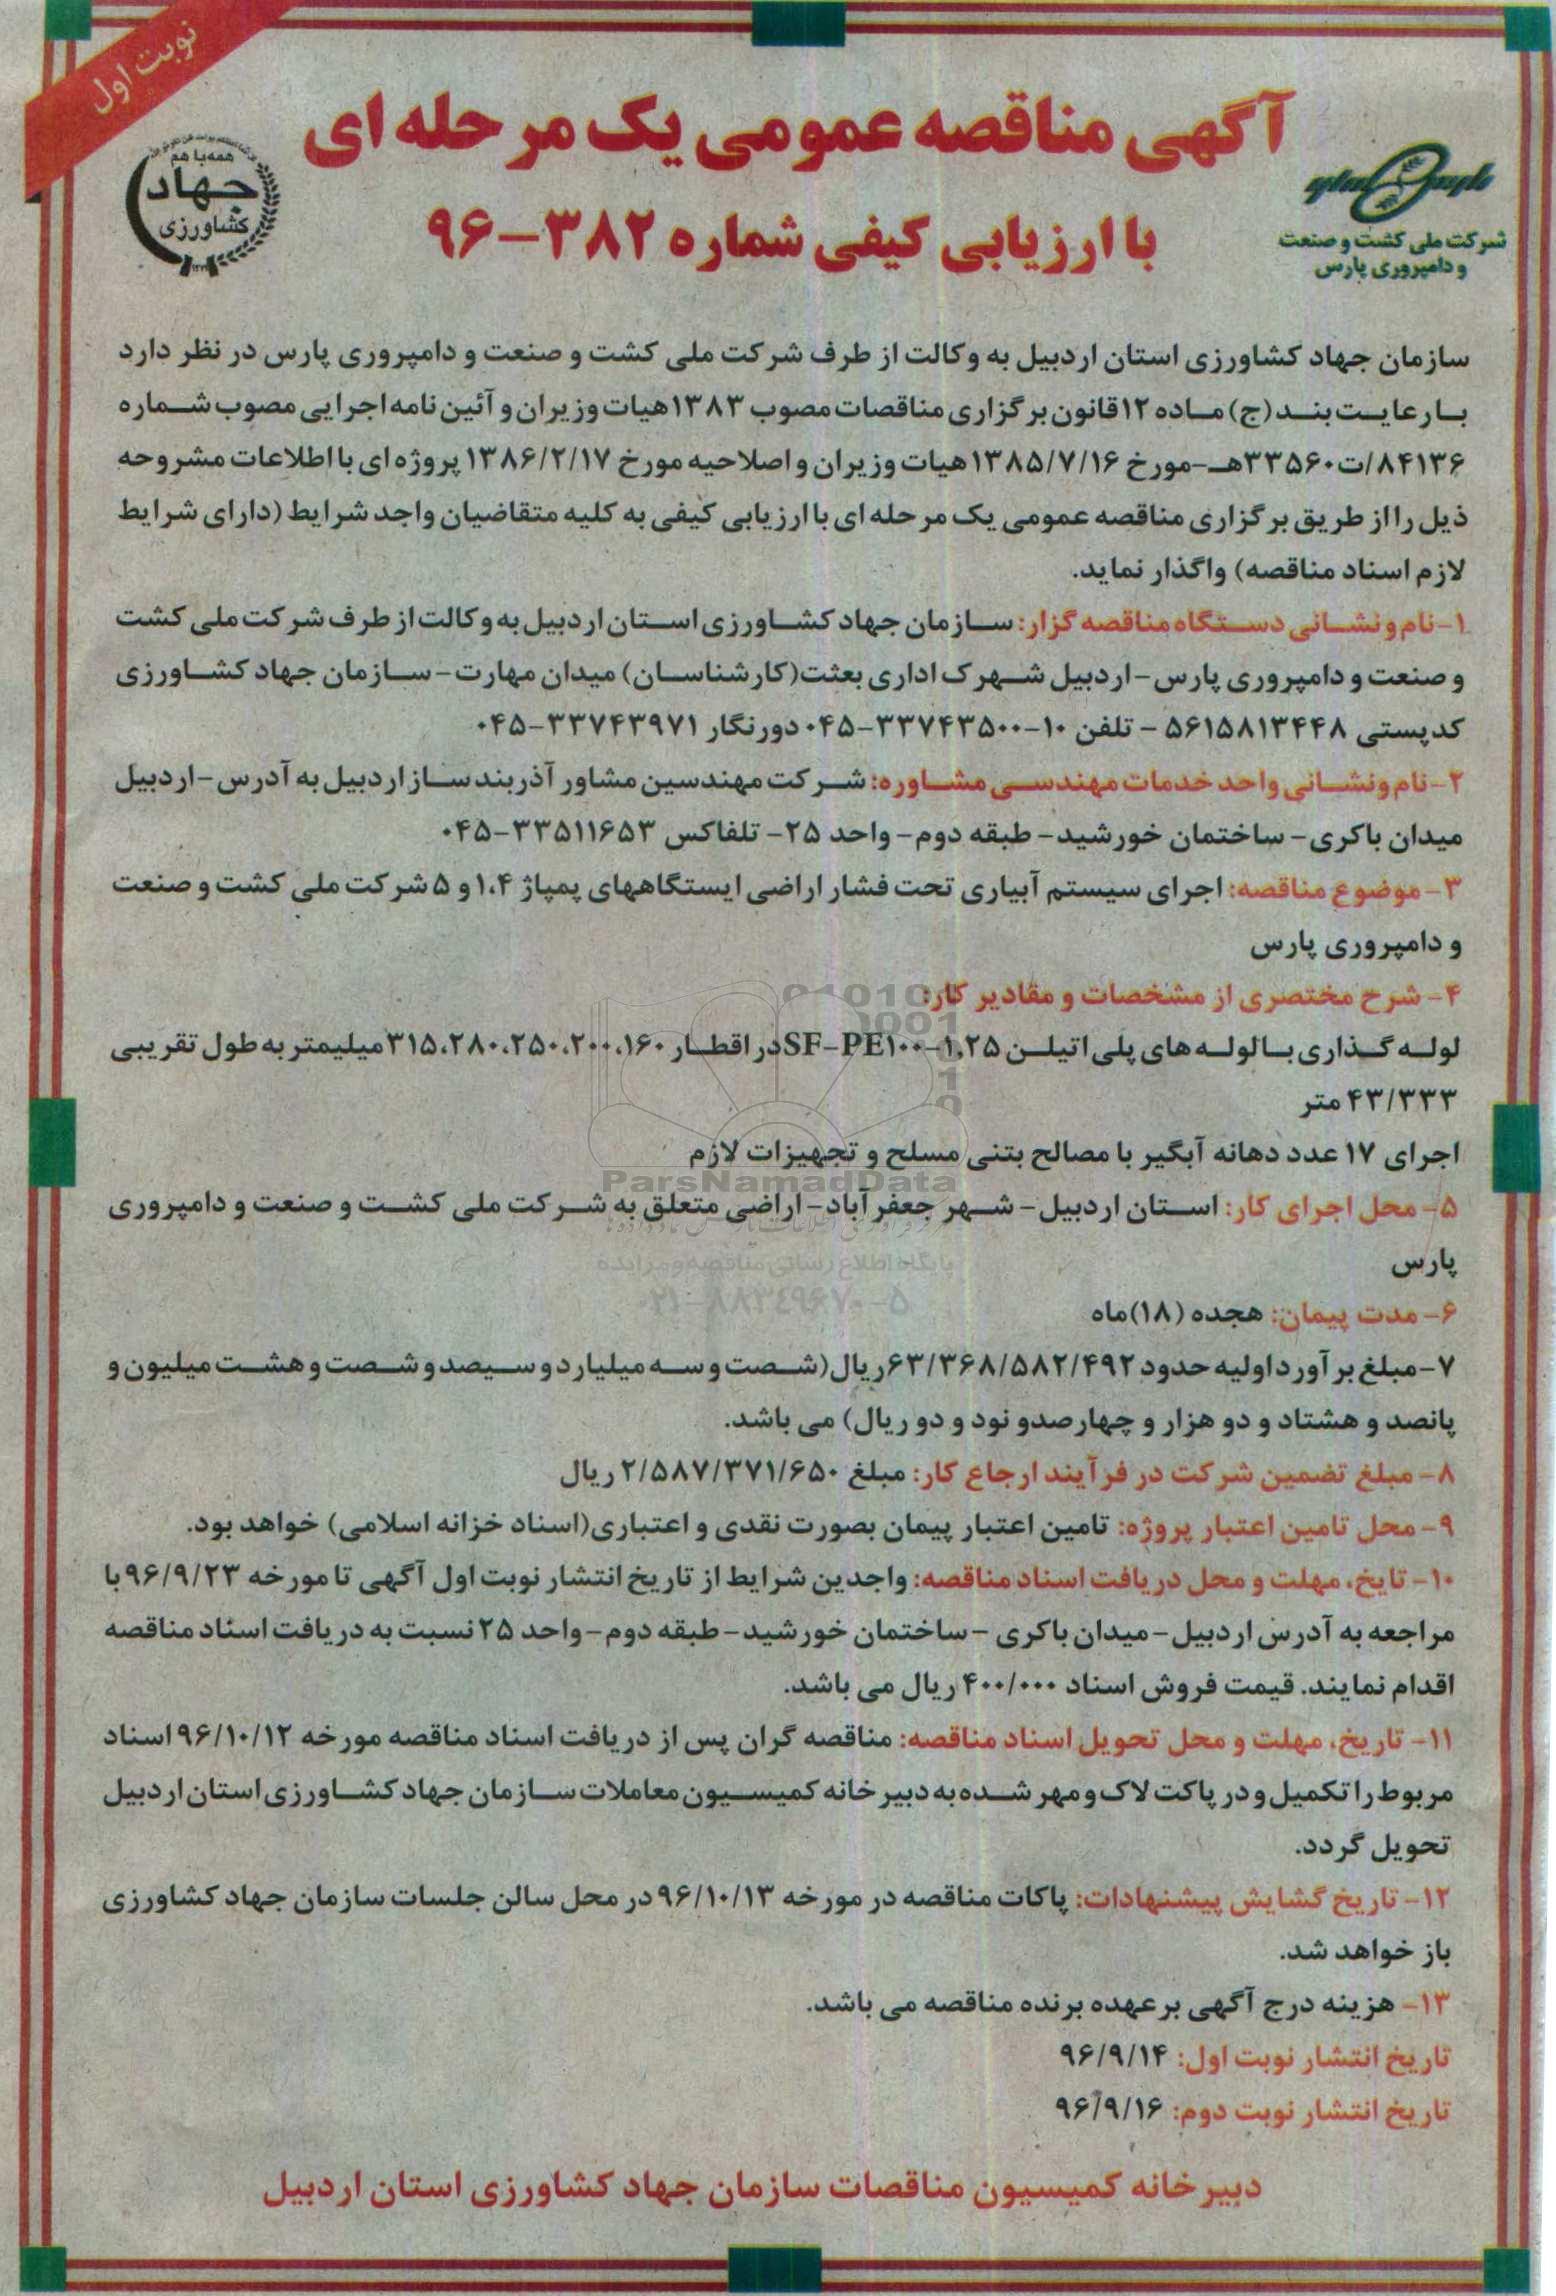 نوبت اول
آگهی مناقصه عمومی یک مرحله ای
با ارزیابی کیفی شماره ۳۸۲-۹۶
همه با هم
جهاد
کشاورزی
شرکت ملی کشت و صنعت
و دامپروری پارس
سازمان جهاد کشاورزی استان اردبیل به وکالت از طرف شرکت ملی کشت و صنعت و دامپروری پارس در نظر دارد
بـا رعایـت بنـد (ج) مـاده ۱۲ قانون برگزاری مناقصات مصوب ۱۳۸۳ هیات وزیران و آئین نامه اجرایی مصوب شـماره
۸۴۱۳۶/ت۳۳۵۶۰هـ-مورخ ۱۳۸۵/۷/۱۶ هیات وزیران و اصلاحیه مورخ ۱۳۸۶/۲/۱۷ پروژه ای با اطلاعات مشروحه
ذیل را از طریق برگزاری مناقصه عمومی یک مرحله ای با ارزیابی کیفی به کلیه متقاضیان واجد شرایط (دارای شرایط
لازم اسناد مناقصه) واگذار نماید.
۱-نام و نشـانی دسـتگاه مناقصه گزار: سـازمان جهاد کشـاورزی اسـتان اردبیل به وکالت از طرف شرکت ملی کشت
و صنعت و دامپروری پارس-اردبیل شـهرک اداری بعثت(کارشناسـان) میدان مهارت-سـازمان جهاد کشـاورزی
کدپستی ۵۶۱۵۸۱۳۴۴۸ - تلفن ۱۰-۳۳۷۴۳۵۰۰-۰۴۵ دورنگار ۳۳۷۴۳۹۷۱-۰۴۵
۲-نام ونشـانی واحد خدمات مهندسـی مشـاوره: شـرکت مهندسین مشاور آذربند سـاز اردبیل به آدرس-اردبیل
میدان باکری- ساختمان خورشید- طبقه دوم- واحد ۲۵- تلفاکس ۳۳۵۱۱۶۵۳-۰۴۵
۳-موضوع مناقصه: اجرای سیستم آبیاری تحت فشار اراضی ایستگاههای پمپاژ ۱،۴ و ۵ شرکت ملی کشت و صنعت
و دامپروری پارس
۴- شرح مختصری از مشخصات و مقادیر کار:
لولـه گـذاری بـا لولـه های پلی اتیلـن SF-PE۱۰۰-۱,۲۵ در اقطـار ۳۱۵،۲۸۰،۲۵۰،۲۰۰،۱۶۰ میلیمتر به طول تقریبی
۴۳/۳۳۳ متر
اجرای ۱۷ عدد دهانه آبگیر با مصالح بتنی مسلح و تجهیزات لازم
ParsNamadData
۵- محل اجرای کار: اسـتان اردبیل- شـهر جعفرآباد- اراضی متعلق به شـرکت ملی کشـت و صنعت و دامپروری
پارس
پایگاه اطلاع رسانی مناقصه و مزایده
۰۲۱-۸۸۳۴۹۶۷۰-۵
۶- مدت پیمان: هجده (۱۸)ماه
۷-مبلغ برآورد اولیه حدود ۶۳/۳۶۸/۵۸۲/۴۹۲ ریال(شـصت و سـه میلیارد و سـیصد و شـصت و هشـت میلیون و
پانصد و هشتاد و دو هزار و چهارصدو نود و دو ریال) می باشد.
۸- مبلغ تضمین شرکت در فرآیند ارجاع کار: مبلغ ۲/۵۸۷/۳۷۱/۶۵۰ ریال
۹- محل تامین اعتبار پروژه: تامین اعتبار پیمان بصورت نقدی و اعتباری(اسناد خزانه اسلامی) خواهد بود.
۱۰- تایخ، مهلت و محل دریافت اسناد مناقصه: واجدین شرایط از تاریخ انتشار نوبت اول آگهی تا مورخه ۹۶/۹/۲۳ با
مراجعه به آدرس اردبیل-میدان باکری -ساختمان خورشید-طبقه دوم-واحد ۲۵ نسبت به دریافت اسناد مناقصه
اقدام نمایند. قیمت فروش اسناد ۴۰۰/۰۰۰ ریال می باشد.
۱۱- تاریخ، مهلت و محل تحویل اسناد مناقصه: مناقصه گران پس از دریافت اسناد مناقصه مورخه ۹۶/۱۰/۱۲ اسناد
مربوط را تکمیل و در پاکت لاک و مهر شـده به دبیرخانه کمیسـیون معاملات سـازمان جهاد کشـاورزی استان اردبیل
تحویل گردد.
۱۲- تاریخ گشایش پیشنهادات: پاکات مناقصه در مورخه ۹۶/۱۰/۱۳ در محل سالن جلسات سازمان جهاد کشاورزی
باز خواهد شد.
۱۳- هزینه درج آگهی بر عهده برنده مناقصه می باشد.
تاریخ انتشار نوبت اول: ۹۶/۹/۱۴
تاریخ انتشار نوبت دوم: ۹۶/۹/۱۶
دبیرخانه کمیسیون مناقصات سازمان جهاد کشاورزی استان اردبیل